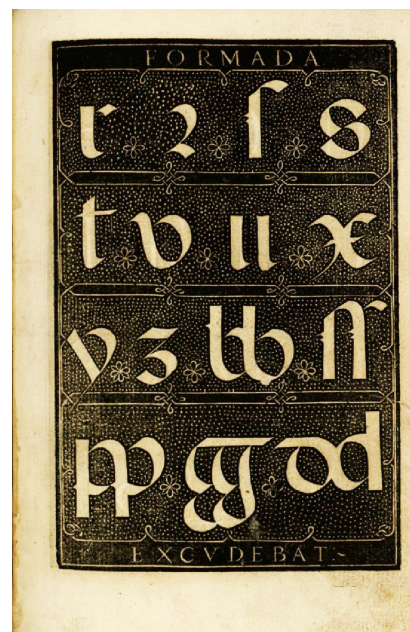 FORMADA
r ꝛ ſ s
t v u x
y z bb ſſ
pp gg dd
EXCVDEBAT.~